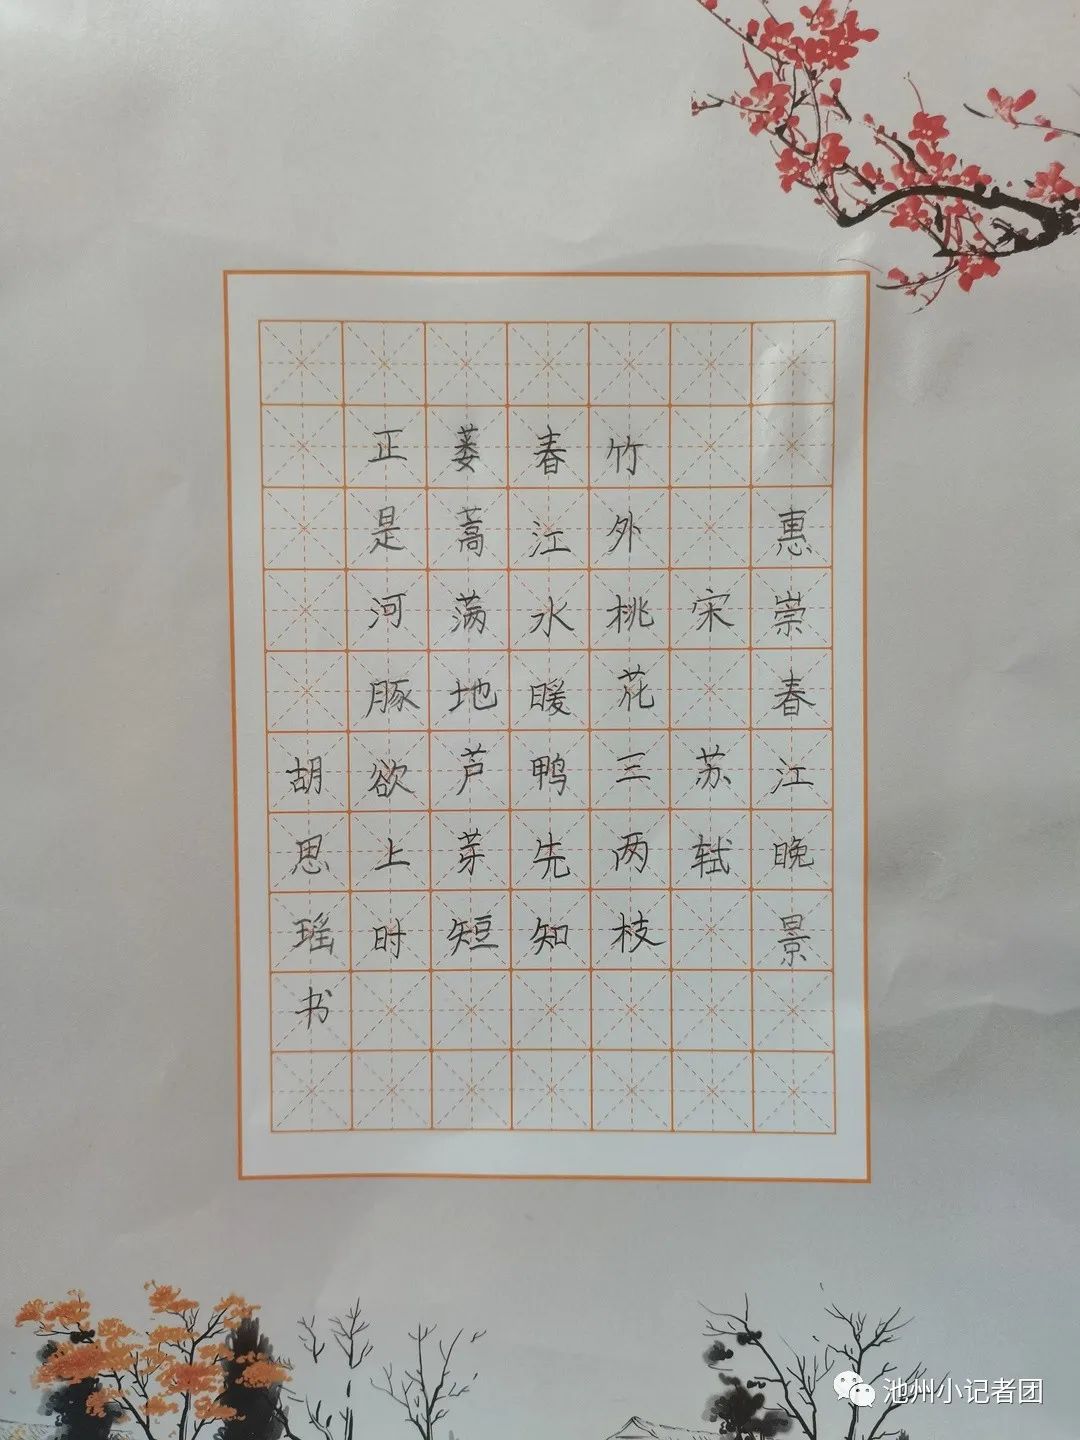 惠崇春江晚景
宋 苏轼
竹外桃花三两枝
春江水暖鸭先知
蒌蒿满地芦芽短
正是河豚欲上时
胡思瑶书
池州小记者团